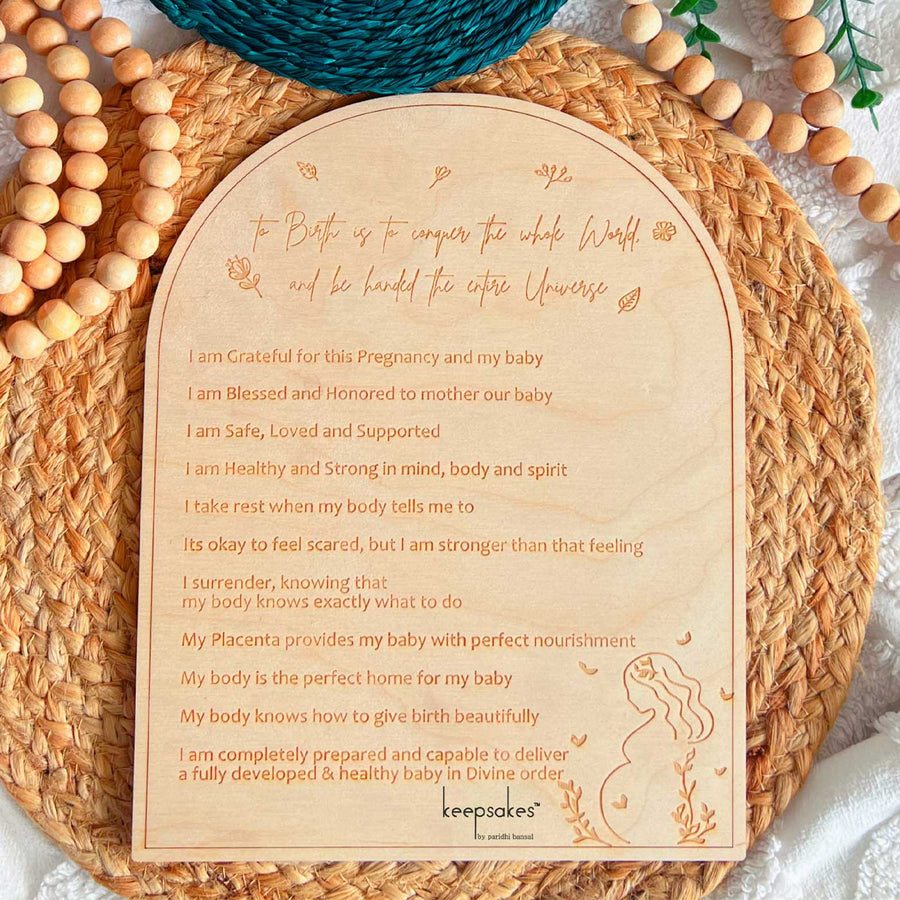 to Birth is to conquer the whole World,
and be handed the entire Universe
I am Grateful for this Pregnancy and my baby
I am Blessed and Honored to mother our baby
I am Safe, Loved and Supported
I am Healthy and Strong in mind, body and spirit
I take rest when my body tells me to
Its okay to feel scared, but I am stronger than that feeling
I surrender, knowing that
my body knows exactly what to do
My Placenta provides my baby with perfect nourishment
My body is the perfect home for my baby
My body knows how to give birth beautifully
I am completely prepared and capable to deliver
a fully developed & healthy baby in Divine order
keepsakes™
by paridhi bansal